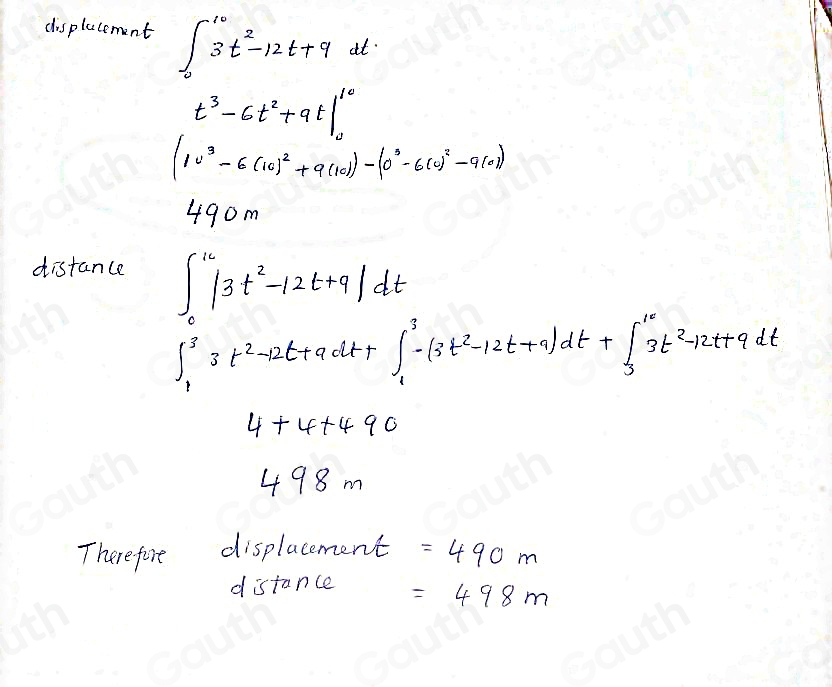 displacement ∫₀¹⁰ 3t²-12t+9 dt.
t³-6t²+9t|₀¹⁰
(10³-6(10)²+9(10))-(0³-6(0)²-9(0))
490m
distance ∫₀¹⁰ |3t²-12t+9| dt
∫₁³ 3t²-12t+9 dt + ∫₁³ -(3t²-12t+9)dt + ∫₃¹⁰ 3t²-12t+9 dt
4+4+490
498 m
Therefore displacement = 490 m
distance = 498 m